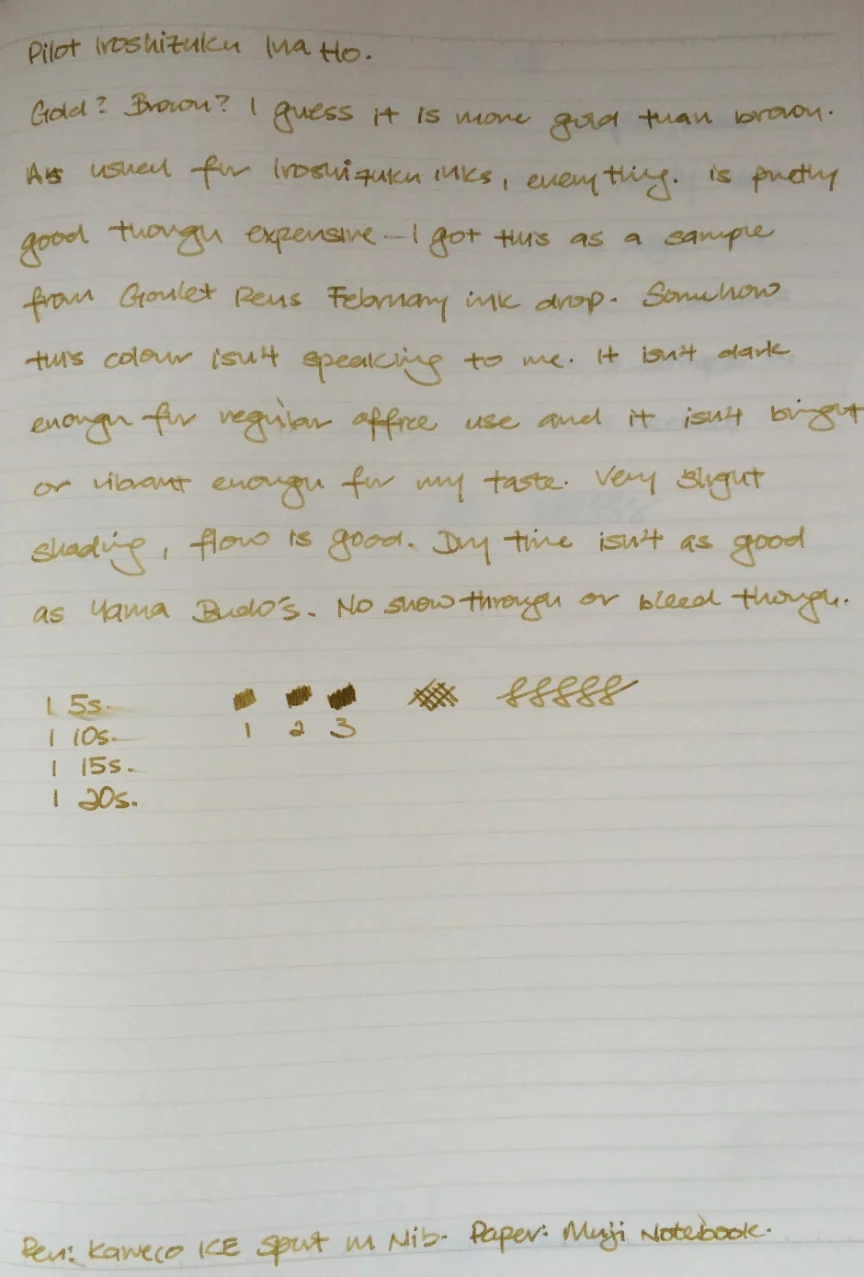 Pilot Iroshizuku Ina Ho.
Gold? Brown? I guess it is more gold than brown.
As usual for Iroshizuku inks, everything. is pretty
good though expensive - I got this as a sample
from Goulet Pens February ink drop. Somehow
this colour isn't speaking to me. It isn't dark
enough for regular office use and it isn't bright
or vibrant enough for my taste. Very slight
shading, flow is good. Dry time isn't as good
as Yama Budo's. No show through or bleed though.
1 5s.
1 10s.
1 15s.
1 20s.
1 2 3
Pen: Kaweco ICE Sport M Nib. Paper: Muji Notebook.